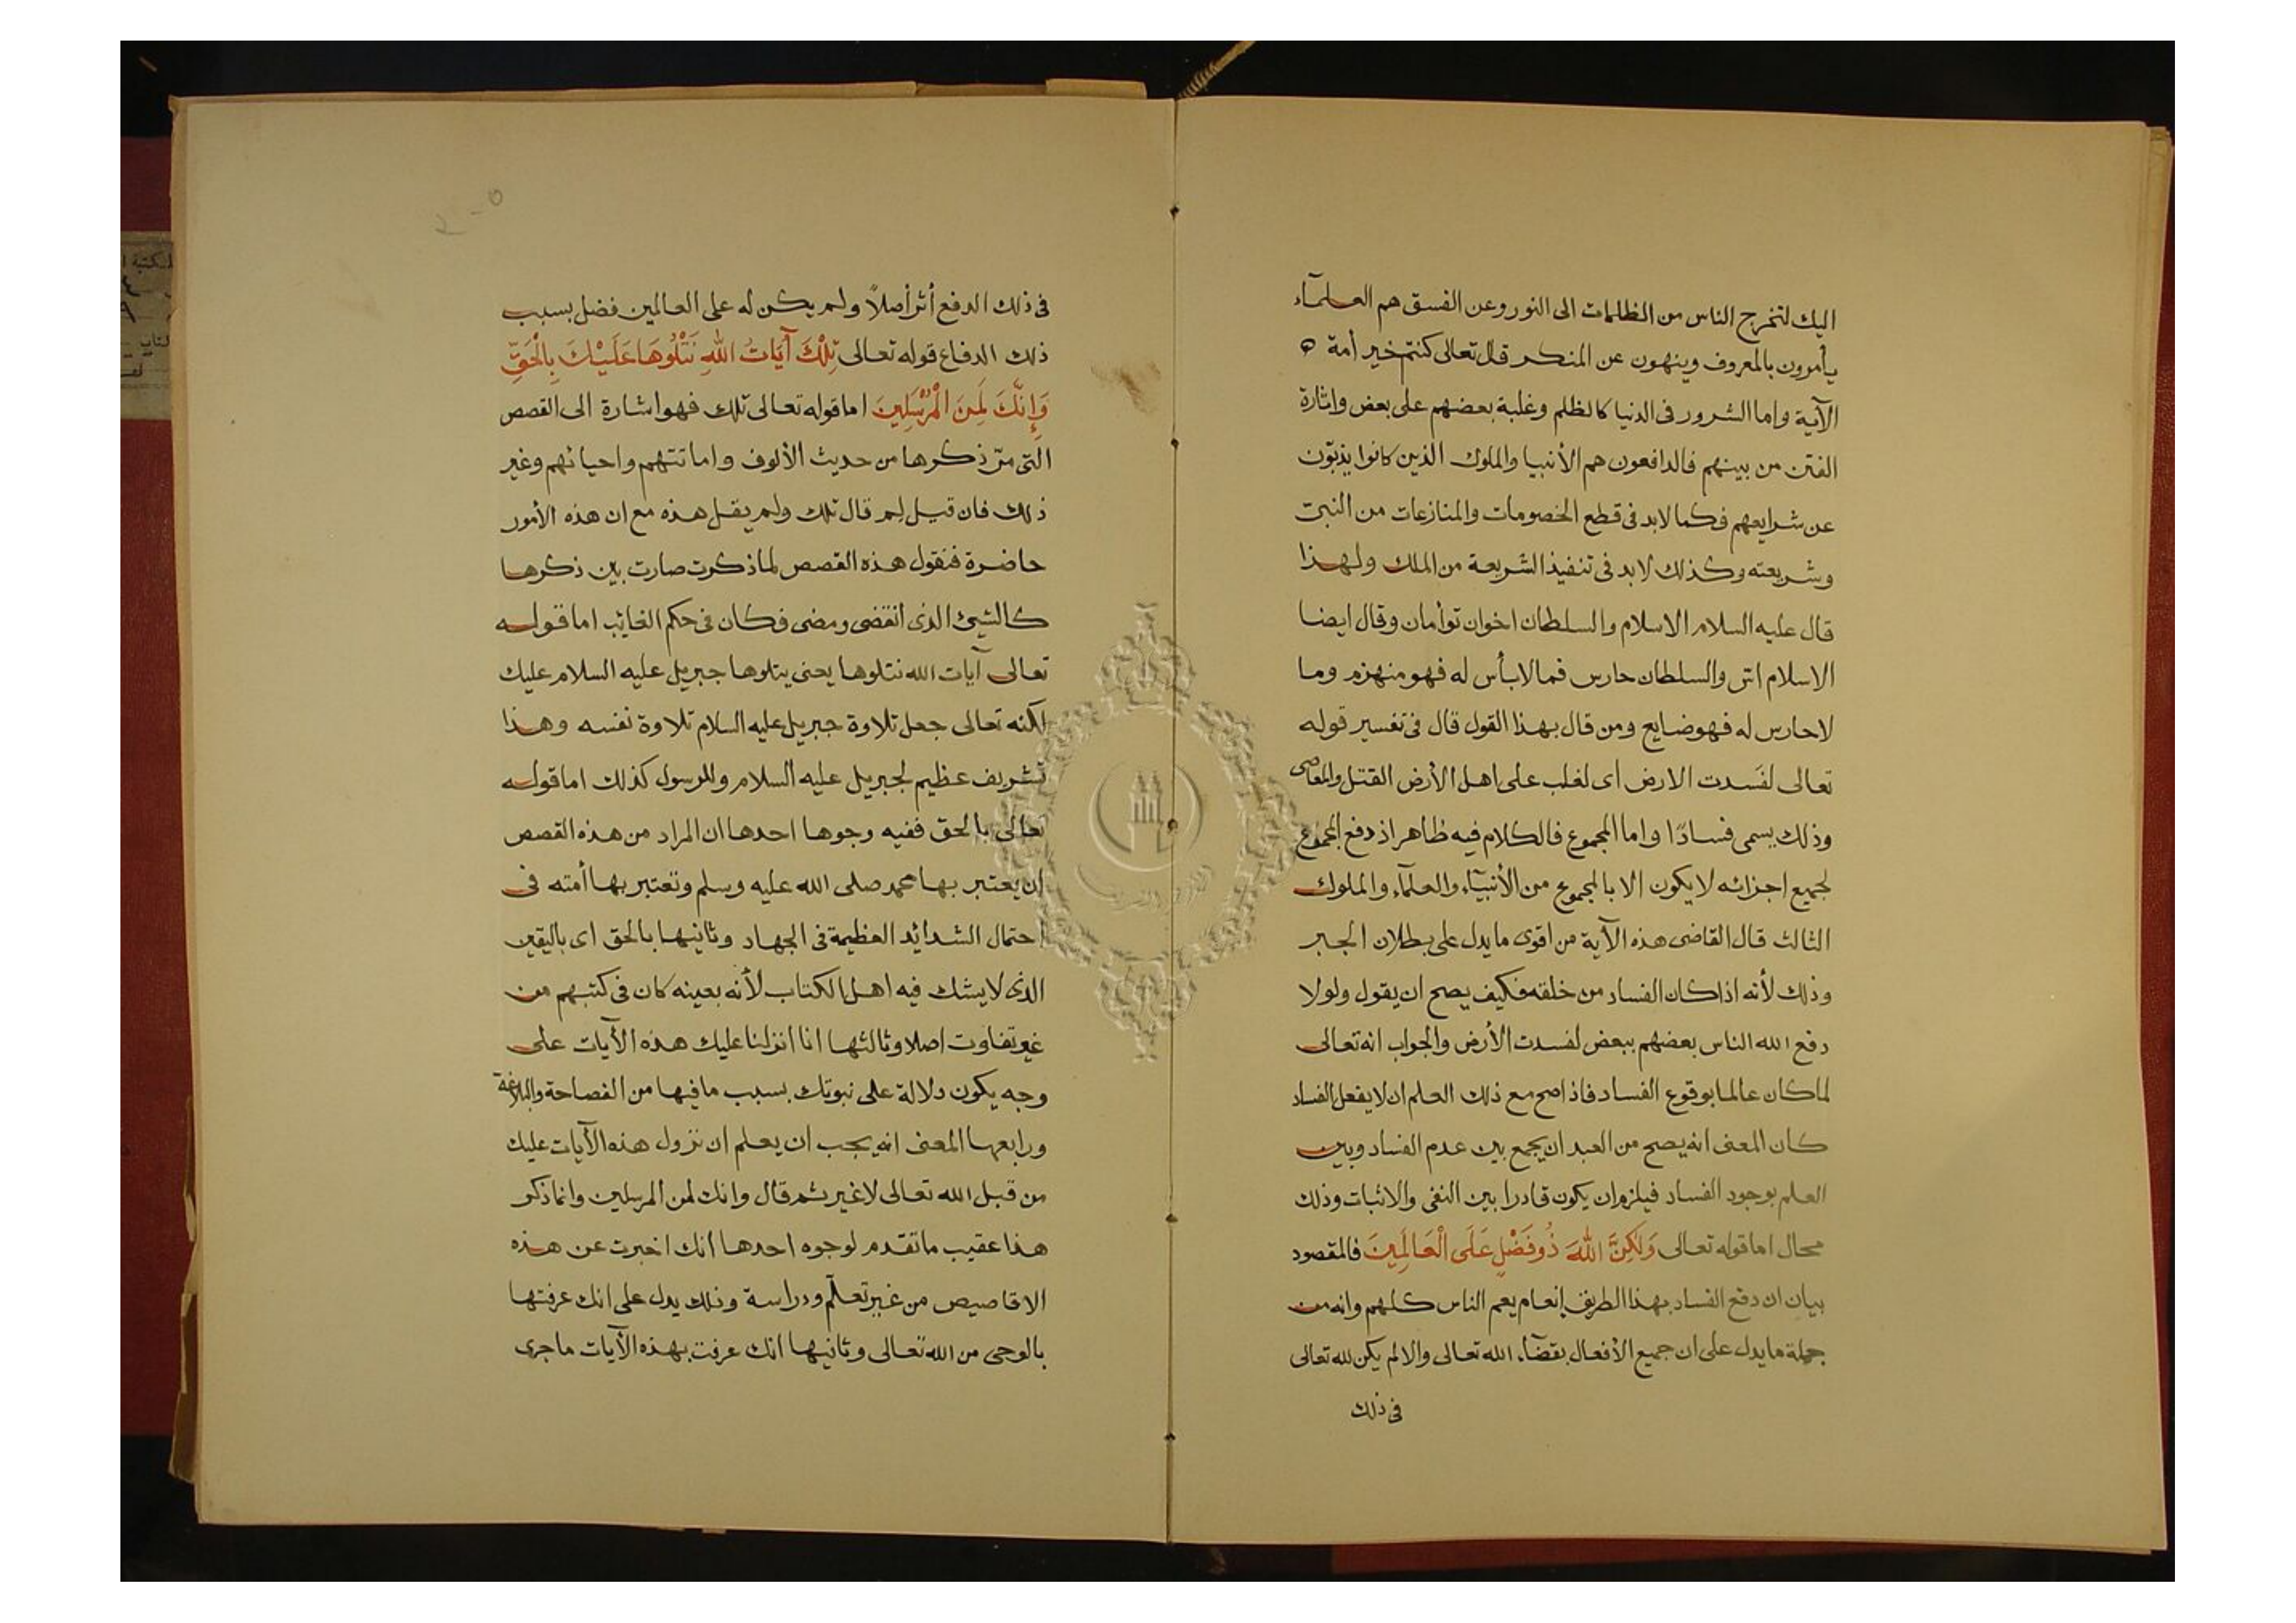 اليك لتخرج الناس من الظلمات الى النور وعن الفسق هم العلمآء
يأمرون بالمعروف وينهون عن المنكر قال تعالى كنتم خير أمة
الآية واما الشرور فى الدنيا كالظلم وغلبة بعضهم على بعض واثارة
الفتن من بينهم فالدافعون هم الأنبيا والملوك الذين كانوا يذبّون
عن شرايعهم فكما لابد فى قطع الخصومات والمنازعات من النبىّ
وشريعته وكذلك لابد فى تنفيذ الشريعة من الملك ولهذا
قال عليه السلام الاسلام والسلطان اخوان توأمان وقال ايضا
الاسلام اسّ والسلطان حارس فما لا بأس له فهو منهزم وما
لا حارس له فهو ضايع ومن قال بهذا القول قال فى تفسير قوله
تعالى لفسَدت الارض اى لغلب على اهل الأرض القتل والمعاصى
وذلك يسمى فسادًا واما المجموع فالكلام فيه ظاهر اذ دفع المجموع
لجميع اجزائه لا يكون الا بالمجموع من الأنبيآء والعلمآء والملوك
الثالث قال القاضى هذه الآية من اقوى ما يدل على بطلان الجبر
وذلك لأنه اذا كان الفساد من خلقه فكيف يصح ان يقول ولولا
دفع الله الناس بعضهم ببعض لفسدت الأرض والجواب انه تعالى
لما كان عالما بوقوع الفساد فاذا صح مع ذلك العلم ان لا يفعل الفساد
كان المعنى انه يصح من العبد ان يجمع بين عدم الفساد وبين
العلم بوجود الفساد فيلزم ان يكون قادرا بين النفى والاثبات وذلك
محال اما قوله تعالى وَلَكِنَّ اللَّهَ ذُو فَضْلٍ عَلَى الْعَالَمِينَ فالمقصود
بيان ان دفع الفساد بهذا الطريق إنعام يعم الناس كلهم وانه من
جملة ما يدل على ان جميع الأفعال بقضآء الله تعالى والا لم يكن لله تعالى
فى ذلك
فى ذلك الدفع أثر أصلاً ولم يكن له على العالمين فضل بسبب
ذلك الدفاع قوله تعالى تِلْكَ آيَاتُ اللَّهِ نَتْلُوهَا عَلَيْكَ بِالْحَقِّ
وَإِنَّكَ لَمِنَ الْمُرْسَلِينَ اما قوله تعالى تلك فهو اشارة الى القصص
التى مرّ ذكرها من حديث الألوف واماتتهم واحيائهم وغير
ذلك فان قيل لِم قال تلك ولم يقل هذه مع ان هذه الأمور
حاضرة فنقول هذه القصص لما ذكرت صارت بين ذكرها
كالشيئ الذى انقضى ومضى فكان فى حكم الغائب اما قوله
تعالى آيات الله نتلوها يعنى يتلوها جبريل عليه السلام عليك
لكنه تعالى جعل تلاوة جبريل عليه السلام تلاوة نفسه وهذا
تشريف عظيم لجبريل عليه السلام وللرسول كذلك اما قوله
تعالى بالحق ففيه وجوها احدها ان المراد من هذه القصص
ان يعتبر بها محمد صلى الله عليه وسلم وتعتبر بها أمته فى
احتمال الشدائد العظيمة فى الجهاد وثانيها بالحق اى باليقين
الذى لا يشك فيه اهل الكتاب لأنه بعينه كان فى كتبهم من
غير تفاوت اصلا وثالثها انا انزلنا عليك هذه الآيات على
وجه يكون دلالة على نبوتك بسبب ما فيها من الفصاحة والبلاغة
ورابعها المعنى انه يجب ان يعلم ان نزول هذه الآيات عليك
من قبل الله تعالى لا غير ثم قال وانك لمن المرسلين وانما ذكر
هذا عقيب ما تقدم لوجوه احدها انك اخبرت عن هذه
الاقاصيص من غير تعلّم ودراسة وذلك يدل على انك عرفتها
بالوحى من الله تعالى وثانيها انك عرفت بهذه الآيات ما جرى